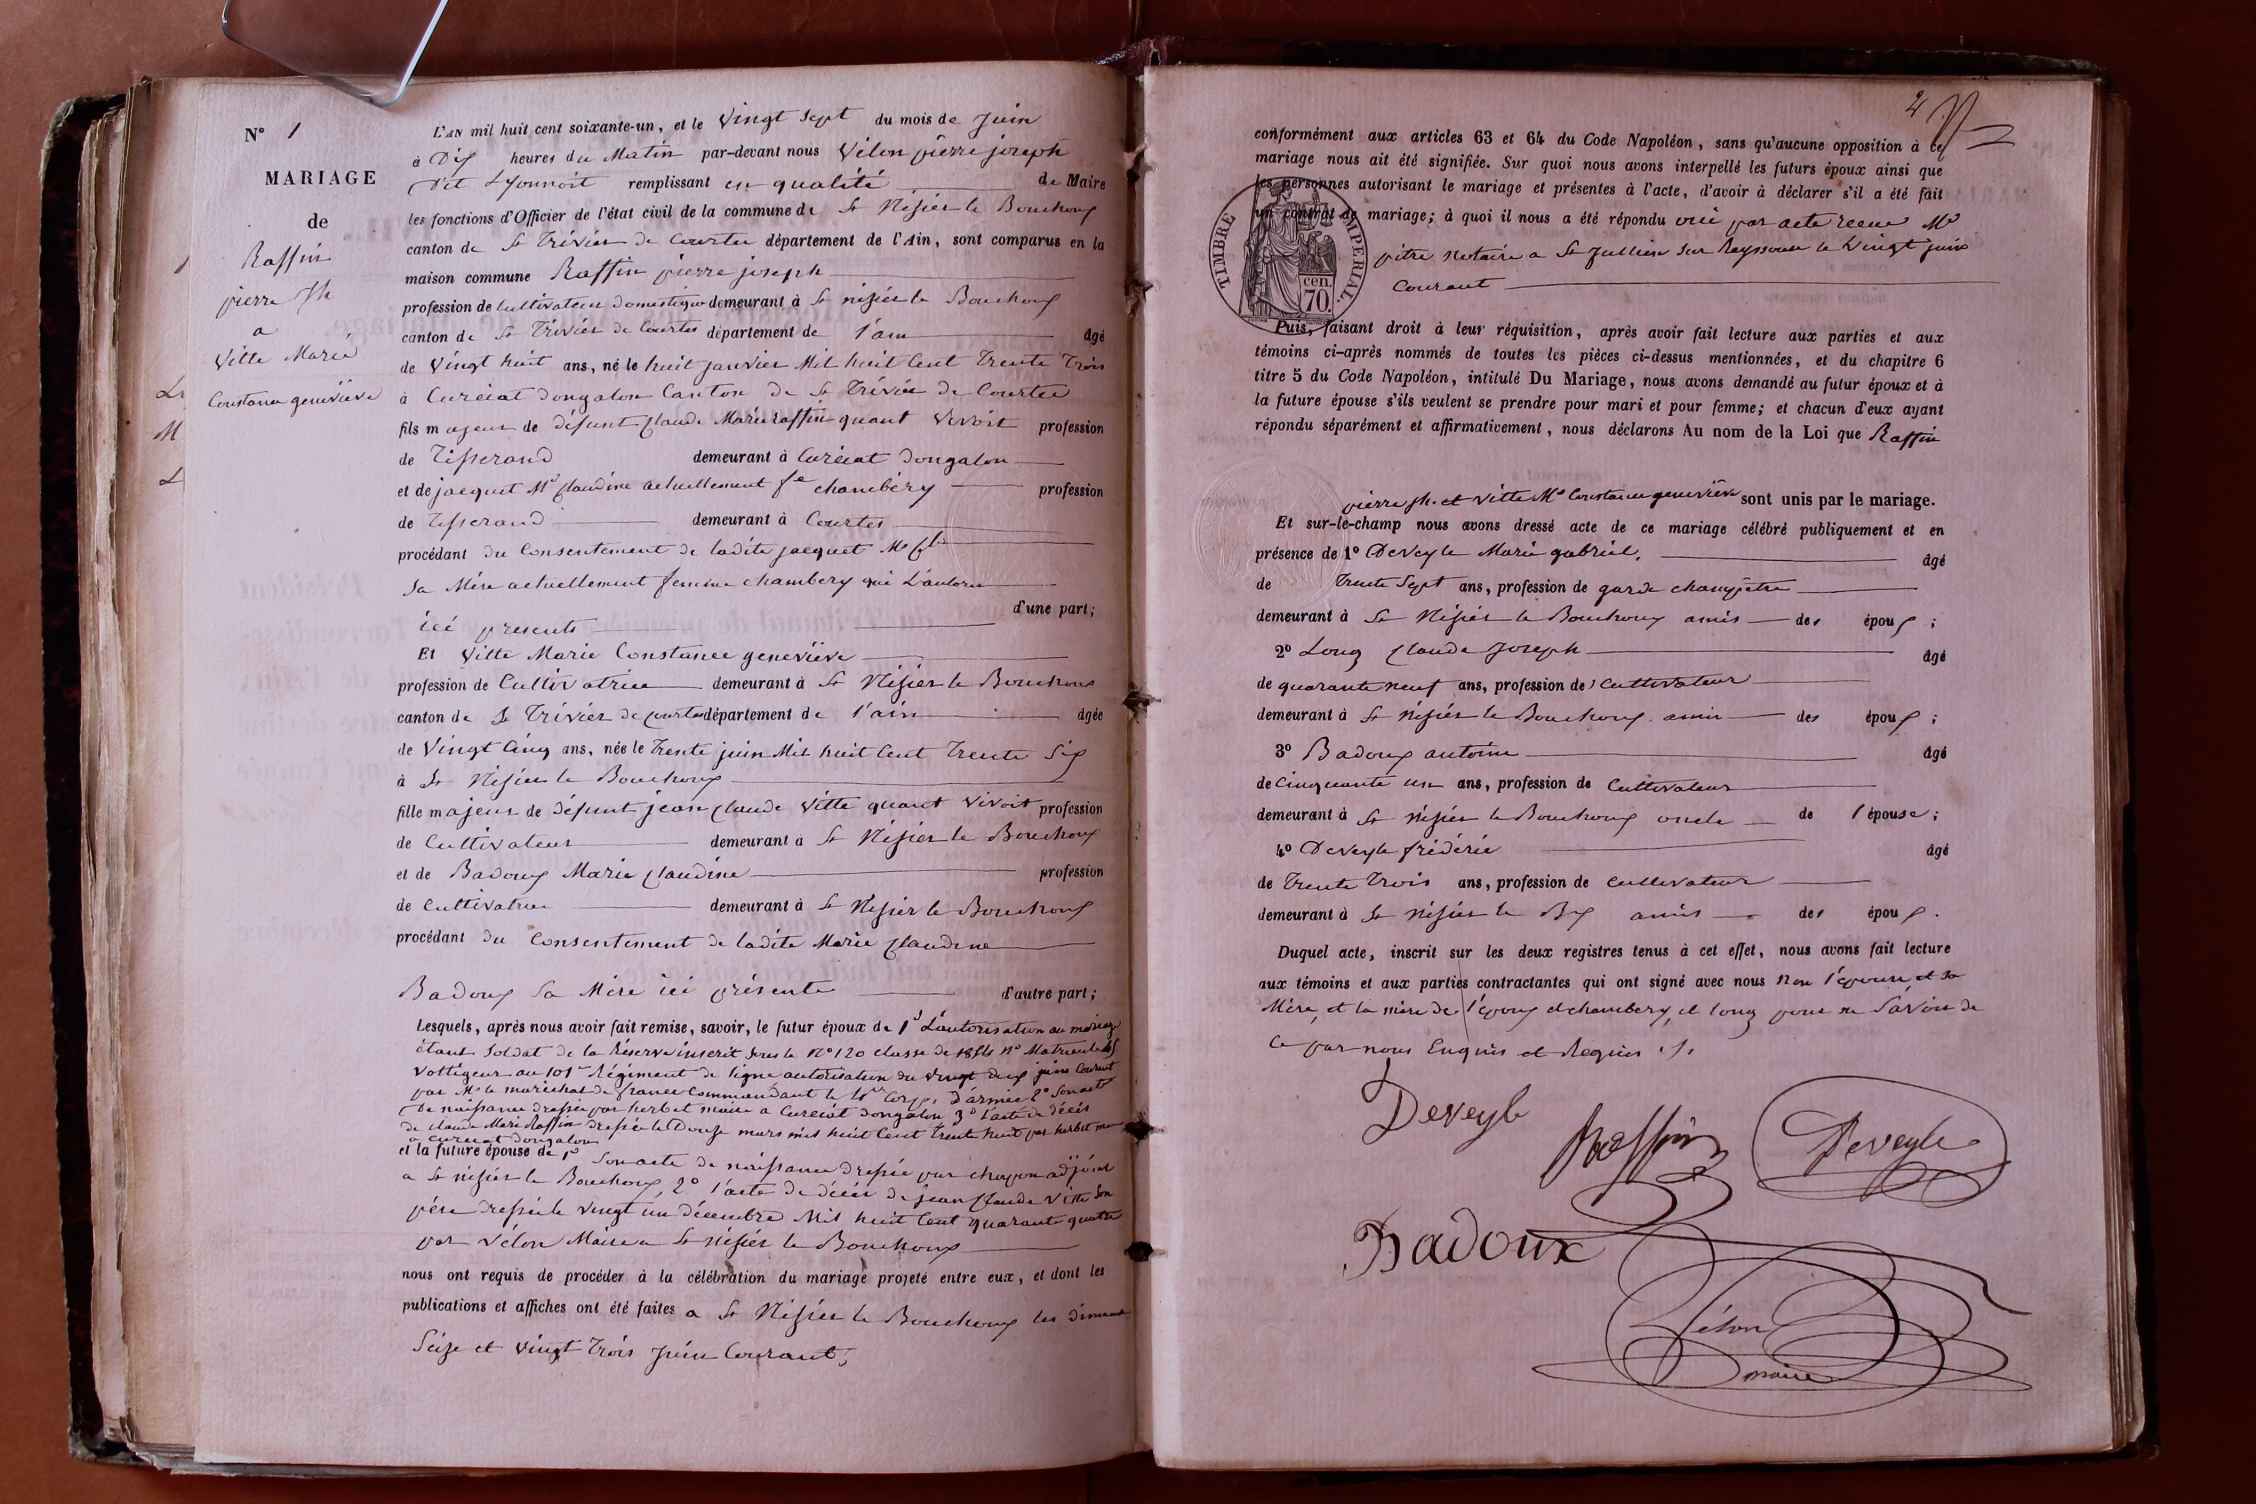 N° 1
MARIAGE
de
Raffin
pierre Jh
a
Vitte Marie
Constance geneviève
L'AN mil huit cent soixante-un, et le Vingt sept du mois de Juin
à Dix heures du Matin par-devant nous Vélon pierre joseph
remplissant en qualité de Maire
les fonctions d'Officier de l'état civil de la commune de St Nisier le Bouchoux
canton de St Trivier de Courtes département de l'Ain, sont comparus en la
maison commune Raffin pierre joseph
profession de Cultivateur domestique demeurant à St nisier le Bouchoux
canton de St Trivier de Courtes département de l'ain âgé
de Vingt huit ans, né le huit janvier Mil huit Cent Trente Trois
à Curciat dongalon Canton de St Trivier de Courtes
fils majeur de défunt Claude Marie raffin quant vivoit profession
de Tisserand demeurant à Curciat dongalon
et de jacquet Me Claudine actuellement fe chambéry profession
de Tisserand demeurant à Courtes
procédant du Consentement de ladite jacquet Me Cl
Sa Mère actuellement femme chambery qui L'autorise
d'une part;
ici présents
Et Vitte Marie Constance geneviève
profession de Cultivatrice demeurant à St Nisier le Bouchoux
canton de St Trivier de courtes département de l'ain âgée
de Vingt Cinq ans, née le Trente juin Mil huit Cent Trente Six
à St Nisier le Bouchoux
fille majeur de défunt jean Claude Vitte quant vivoit profession
de Cultivateur demeurant à St Nisier le Bouchoux
et de Badoux Marie Claudine profession
de Cultivatrice demeurant à St Nisier le Bouchoux
procédant du Consentement de ladite Marie Claudine
Badoux Sa Mère ici présente d'autre part;
Lesquels, après nous avoir fait remise, savoir, le futur époux de 1° L'autorisation au mariage
étant soldat de la Réserve inscrit sous le N° 120 classe de N° Matricule
Voltigeur au 101me Régiment de ligne autorisation du vingt deux juin Courant
par Mr le maréchal de france Commandant le Corps d'armée 2° Son acte
de naissance dressée par herbet maire a Curciat dongalon 3° L'acte de décès
de claude Marie Raffin dressée le Douze mars mil huit Cent Trente huit par herbet
a curciat dongalon
et la future épouse de 1° Son acte de naissance dressée par adjoint
a St nisier le Bouchoux, 2° l'acte de décès de jean Claude Vitte Son
père dressée le vingt un décembre Mil huit Cent quarante quatre
par Vélon Maire a St nisier le Bouchoux
nous ont requis de procéder à la célébration du mariage projeté entre eux, et dont les
publications et affiches ont été faites a St Nisier le Bouchoux les
Seize et vingt Trois Juin Courant,
2
conformément aux articles 63 et 64 du Code Napoléon, sans qu'aucune opposition à ce
mariage nous ait été signifiée. Sur quoi nous avons interpellé les futurs époux ainsi que
les personnes autorisant le mariage et présentes à l'acte, d'avoir à déclarer s'il a été fait
un contrat de mariage; à quoi il nous a été répondu oui par acte recue Me
pitre notaire a St Jullien sur Reyssouze le Vingt juin
Courant
TIMBRE IMPERIAL.
cen.
70.
Puis, faisant droit à leur réquisition, après avoir fait lecture aux parties et aux
témoins ci-après nommés de toutes les pièces ci-dessus mentionnées, et du chapitre 6
titre 5 du Code Napoléon, intitulé Du Mariage, nous avons demandé au futur époux et à
la future épouse s'ils veulent se prendre pour mari et pour femme; et chacun d'eux ayant
répondu séparément et affirmativement, nous déclarons Au nom de la Loi que Raffin
pierre Jh. et Vitte Me Constance geneviève sont unis par le mariage.
Et sur-le-champ nous avons dressé acte de ce mariage célébré publiquement et en
présence de 1° Deveyle Marie gabriel, âgé
de Trente Sept ans, profession de garde champêtre
demeurant à St Nisier le Bouchoux amis des époux;
2° Long Claude Joseph âgé
de quarante neuf ans, profession de Cultivateur
demeurant à St Nisier le Bouchoux amis des époux;
3° Badoux antoine âgé
de Cinquante un ans, profession de Cultivateur
demeurant à St nisier le Bouchoux oncle de l'épouse;
4° Deveyle frédéric âgé
de Trente Trois ans, profession de cultivateur
demeurant à St nisier le Bx amis des époux.
Duquel acte, inscrit sur les deux registres tenus à cet effet, nous avons fait lecture
aux témoins et aux parties contractantes qui ont signé avec nous non l'épouse, et sa
Mère, et la mère de l'époux et chambery, et long pour ne Savoir de
Ce par nous Enquis et Requis
Deveyle
Raffin
Deveyle
Badoux
Vélon
maire